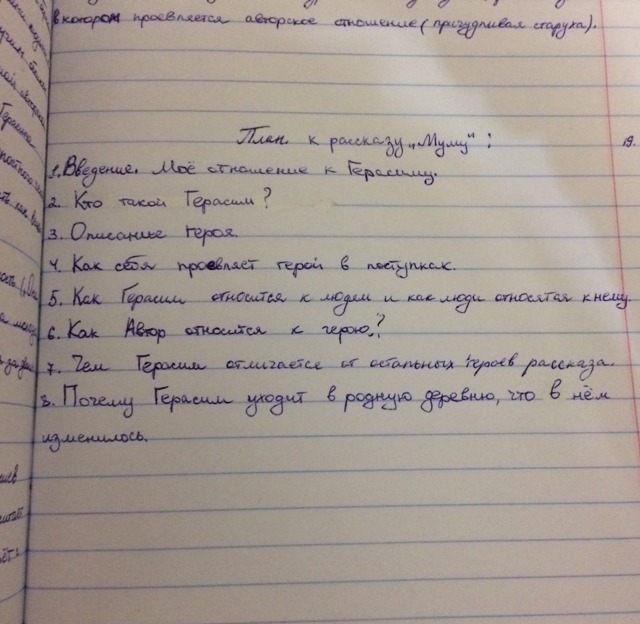 в котором проевляется авторское отношение (причудливая старуха).
План к рассказу „Муму“:
19.
1. Введение. Моё отношение к Герасиму.
2. Кто такой Герасим?
3. Описание героя.
4. Как себя проевляет герой в поступках.
5. Как Герасим относится к людем и как люди относятся к нему
6. Как Автор относится к герою?
7. Чем Герасим отличается от остальных героев рассказа.
8. Почему Герасим уходит в родную деревню, что в нём
изменилось.